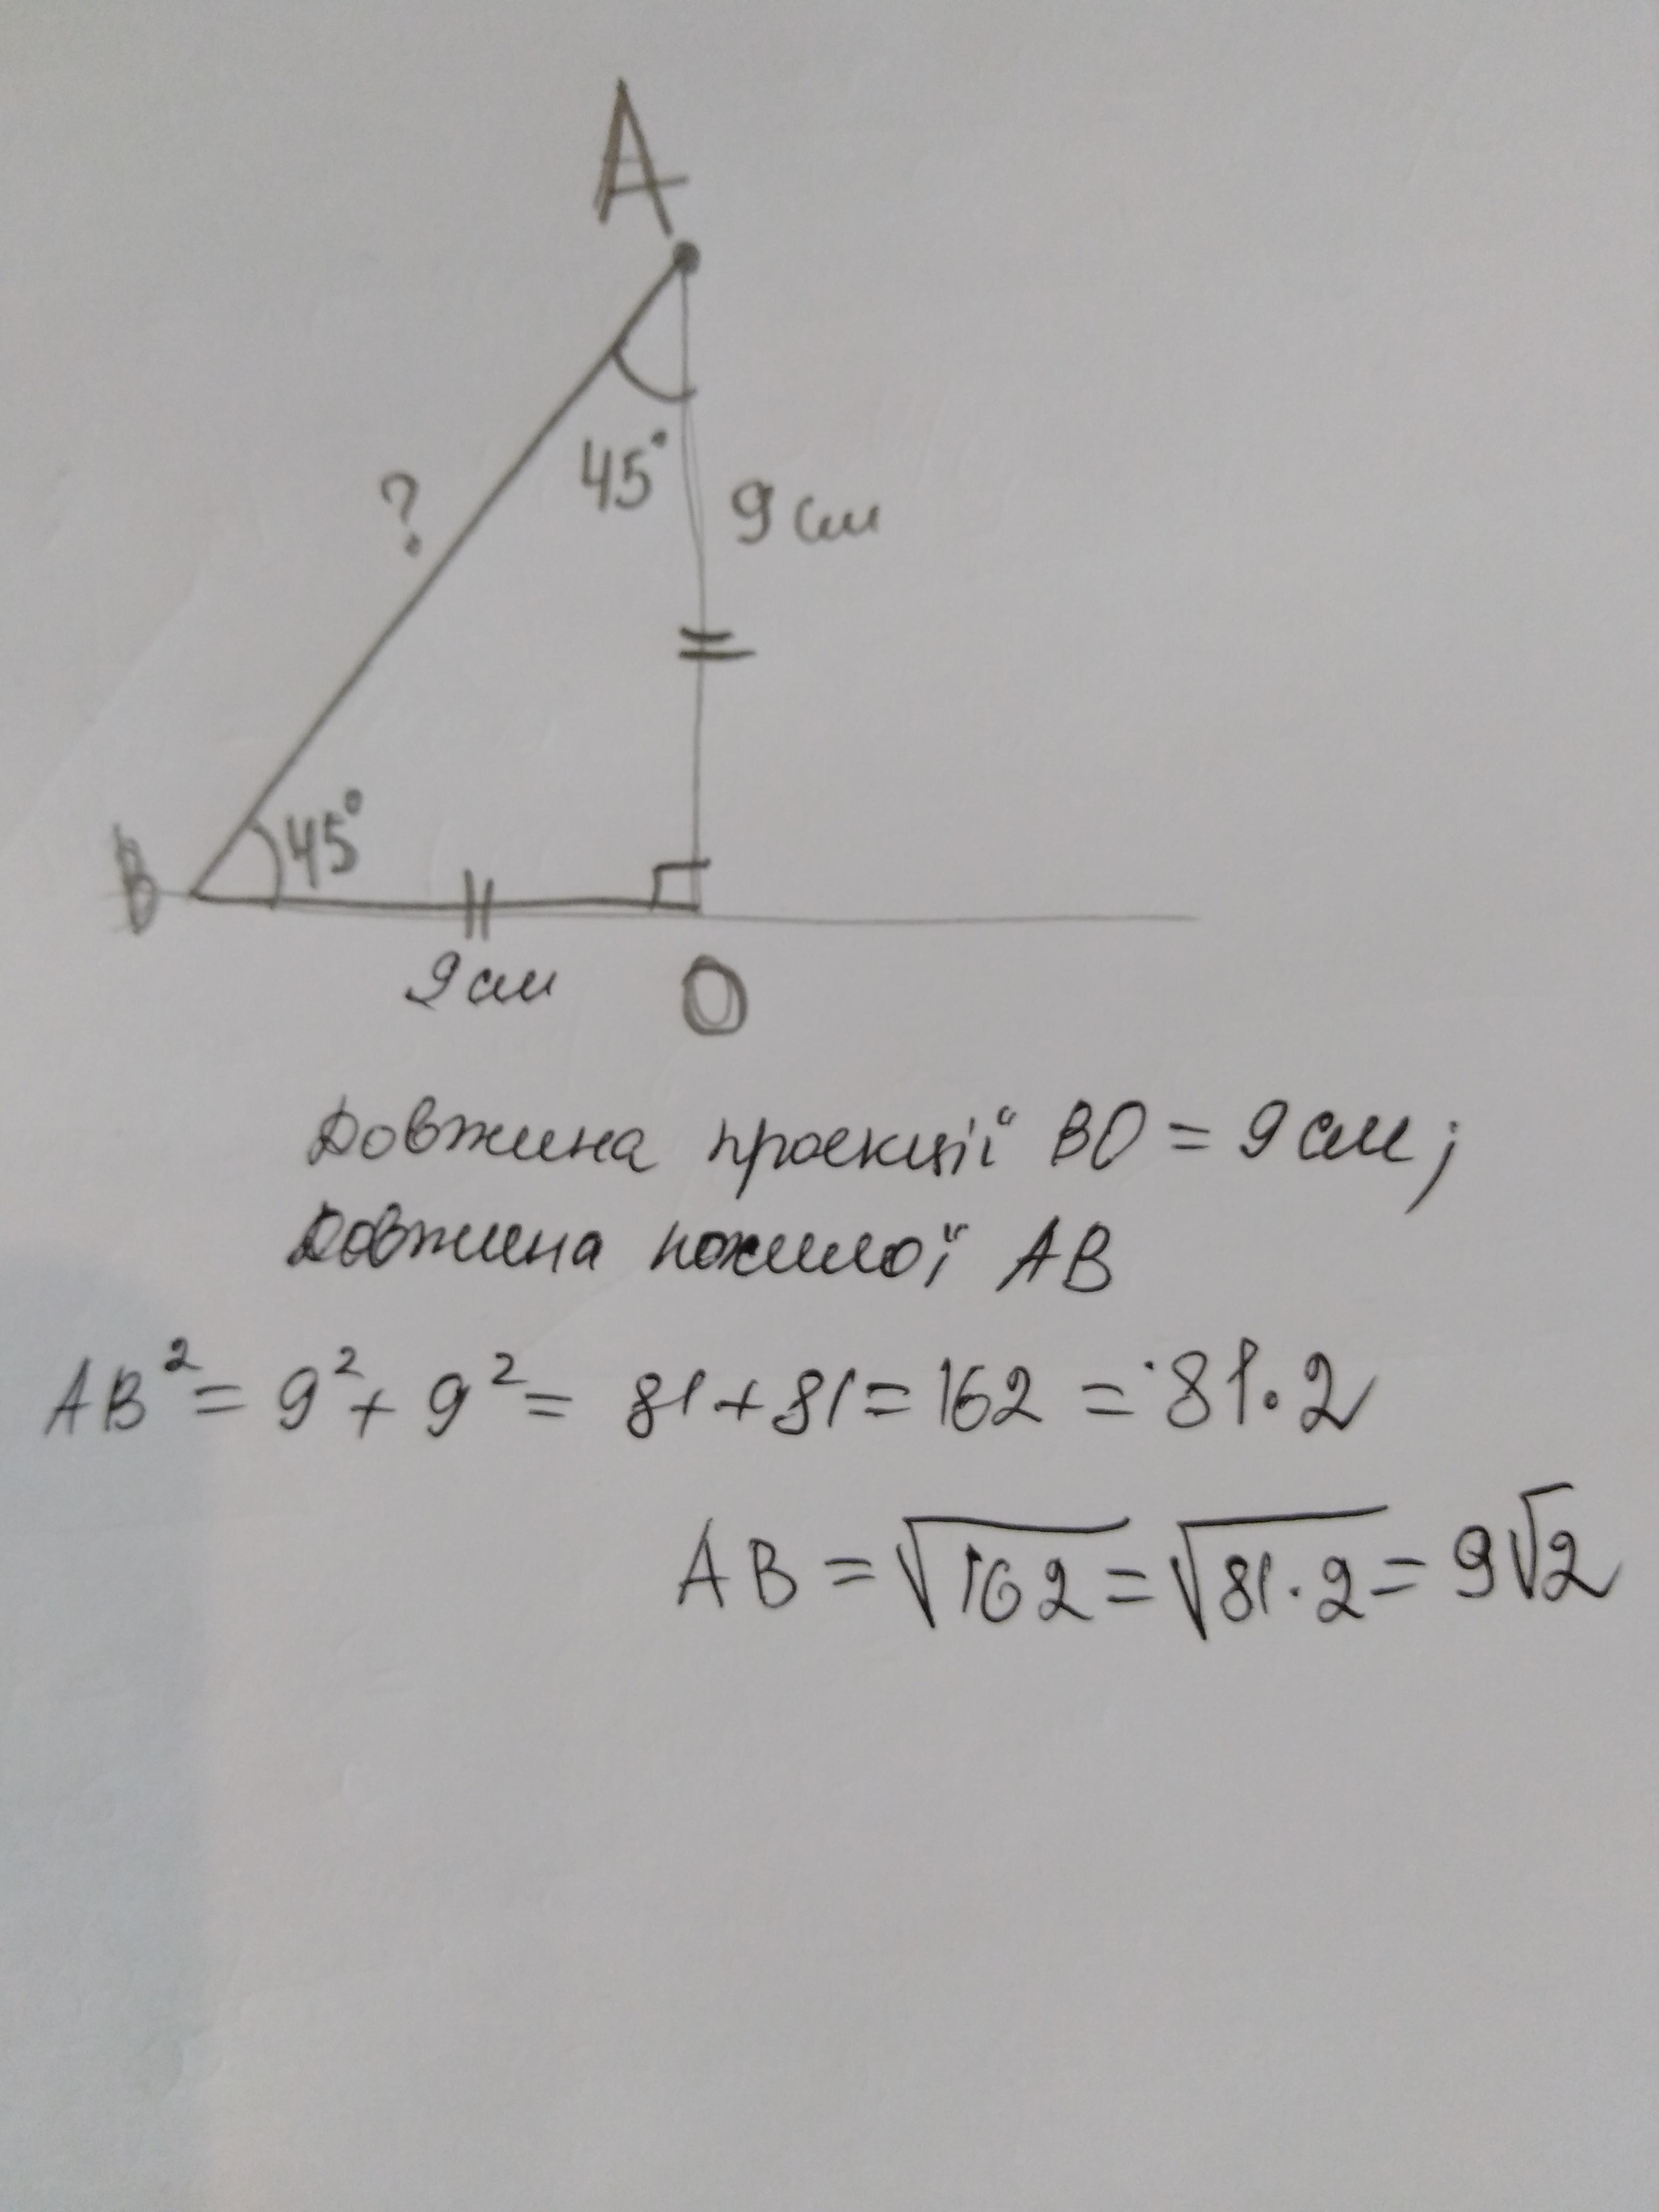 A
45°
9 см
?
B
45°
9 см
O
Довжина проекції BO = 9 см;
Довжина похилої AB
AB² = 9² + 9² = 81 + 81 = 162 = 81 · 2
AB = √162 = √81 · 2 = 9√2